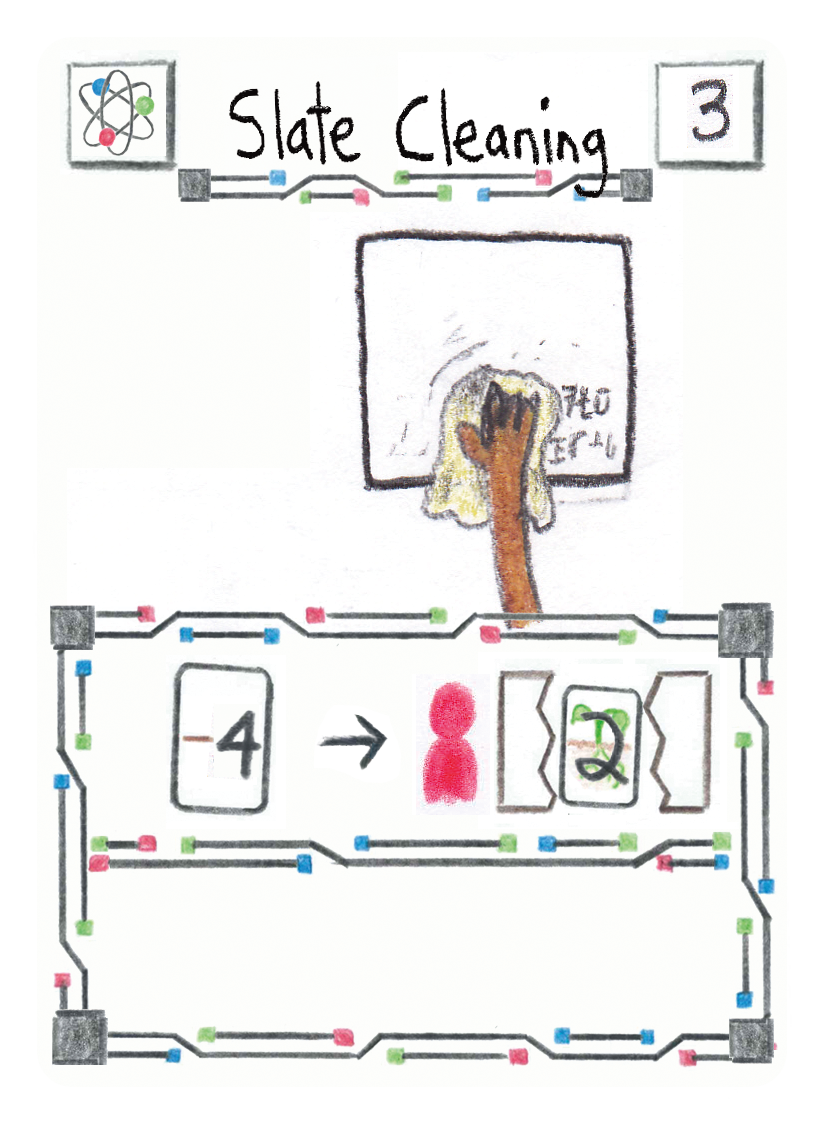 Slate Cleaning
3
-4
2